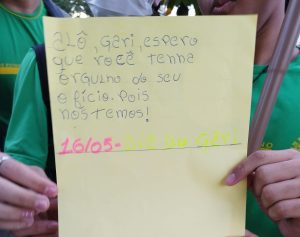 aLô, Gari, espero
que você tenha
orgulho do seu
ofício. Pois
nós temos!
16/05- Dia Do Gari